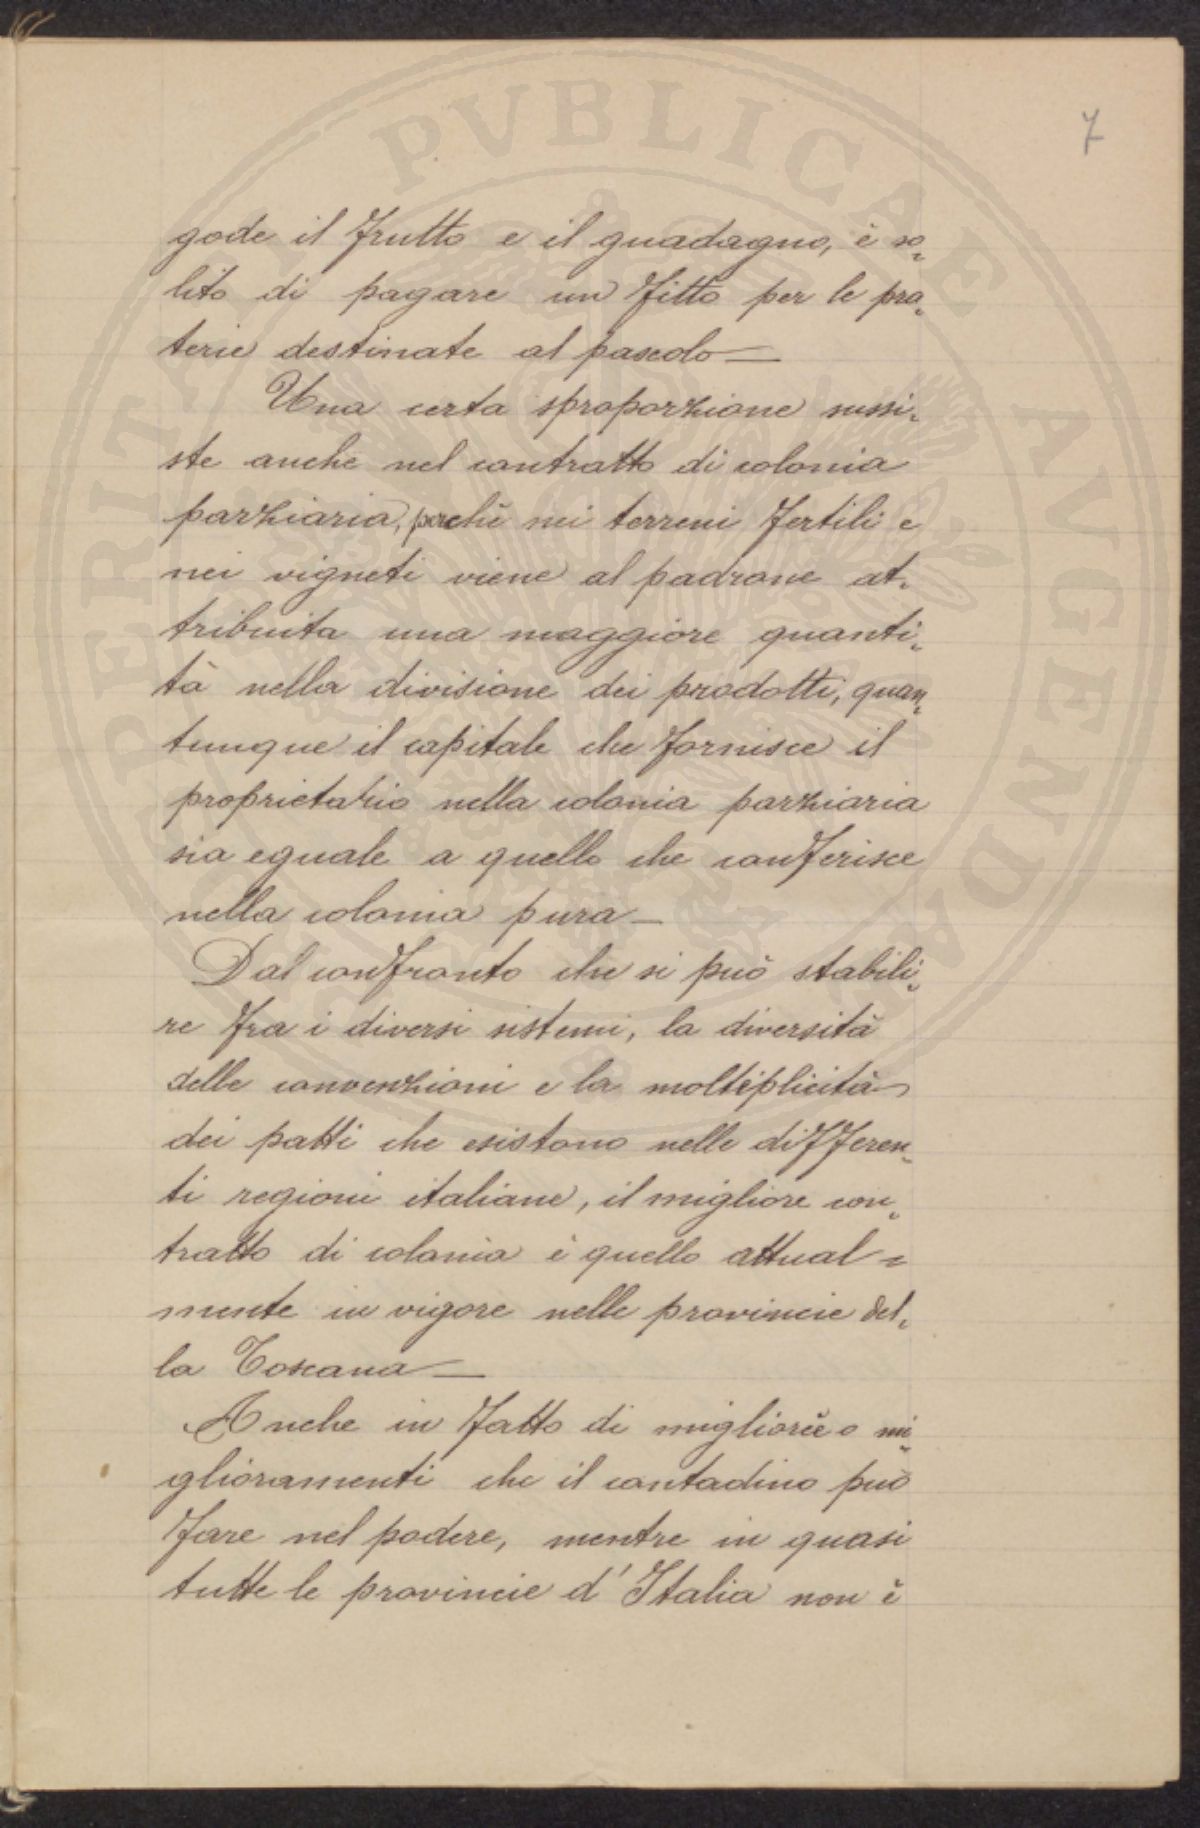 7
gode il frutto e il guadagno, è so-
lito di pagare un fitto per le pra-
terie destinate al pascolo —
Una certa sproporzione sussi-
ste anche nel contratto di colonia
parziaria, perchè nei terreni fertili e
nei vigneti viene al padrone at-
tribuita una maggiore quanti-
tà nella divisione dei prodotti, quan-
tunque il capitale che fornisce il
proprietario nella colonia parziaria
sia eguale a quello che conferisce
nella colonia pura —
Dal confronto che si può stabili-
re fra i diversi sistemi, la diversità
delle convenzioni e la molteplicità
dei patti che esistono nelle differen-
ti regioni italiane, il migliore con-
tratto di colonia è quello attual=
mente in vigore nelle provincie del-
la Toscana —
Anche in fatto di migliorie o mi-
glioramenti che il contadino può
fare nel podere, mentre in quasi
tutte le provincie d'Italia non è
PERITAT PVBLICAE AVGENDAE